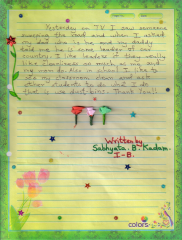 Yesterday on T.V. I saw someone
sweeping the road and when I asked
my dad who is he and my daddy
told me he is some leader of our
country. I like leaders if they really
like cleanliness as much as me and
my mom do. Also in school I like to
my classroom clean and ask
other students to do what I do
that is use dust-bin. Thank You!!
Written by
Sabhyata. B. Kadam.
I-B.
colors